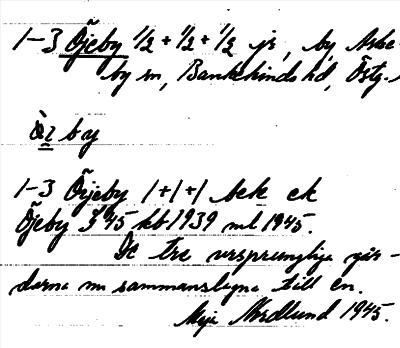 1-3 Öjeby 1/2 + 1/2 + 1/2 jr, by Aske-
by sn, Bankekinds hd, Östg.
by
1-3 Öijeby 1+1+1 bek ek
Öjeby 1945 kb 1939 ml 1945.
De tre ursprungliga går-
darna nu sammanslagna till en.
Maja Nordlund 1945.